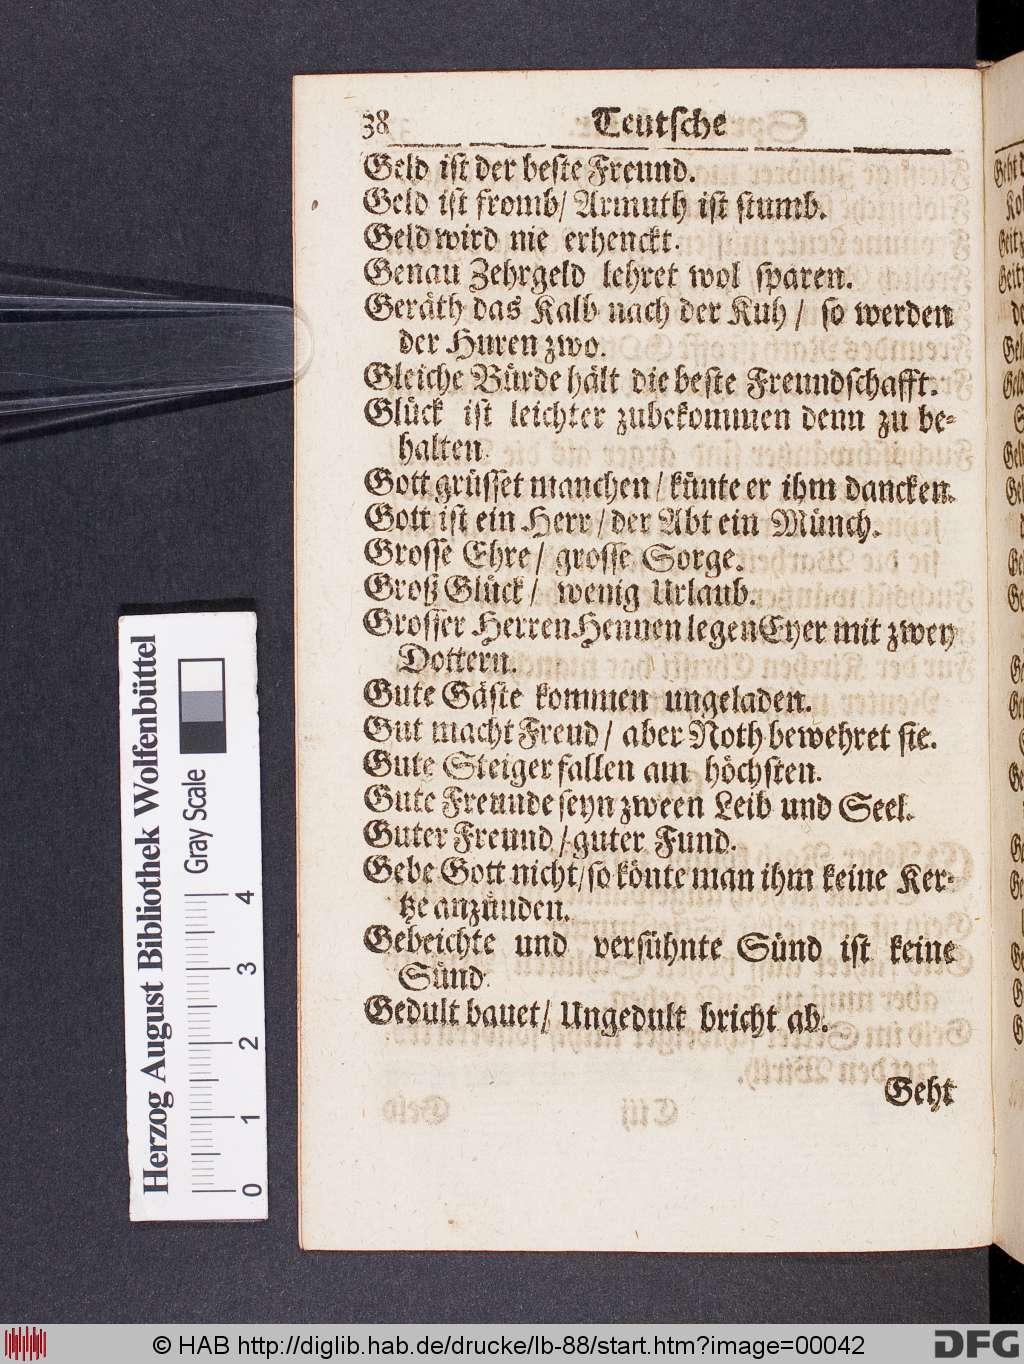 38 Teutsche
Geld ist der beste Freund.
Geld ist fromb/ Armuth ist stumb.
Geld wird nie erhenckt.
Genau Zehrgeld lehret wol sparen.
Geräth das Kalb nach der Kuh / so werden
der Huren zwo.
Gleiche Bürde hält die beste Freundschafft.
Glück ist leichter zubekommen denn zu be-
halten.
Gott grüsset manchen / künte er ihm dancken.
Gott ist ein Herr / der Abt ein Münch.
Grosse Ehre / grosse Sorge.
Groß Glück / wenig Urlaub.
Grosser Herren Hennen legen Eyer mit zwey
Dottern.
Gute Gäste kommen ungeladen.
Gut macht Freud / aber Noth bewehret sie.
Gute Steiger fallen am höchsten.
Gute Freunde seyn zween Leib und Seel.
Guter Freund / guter Fund.
Gebe Gott nicht / so könte man ihm keine Ker-
tze anzünden.
Gebeichte und versühnte Sünd ist keine
Sünd.
Gedult bauet / Ungedult bricht ab.
Geht
Herzog August Bibliothek Wolfenbüttel
Gray Scale
0 1 2 3 4
© HAB http://diglib.hab.de/drucke/lb-88/start.htm?image=00042
DFG